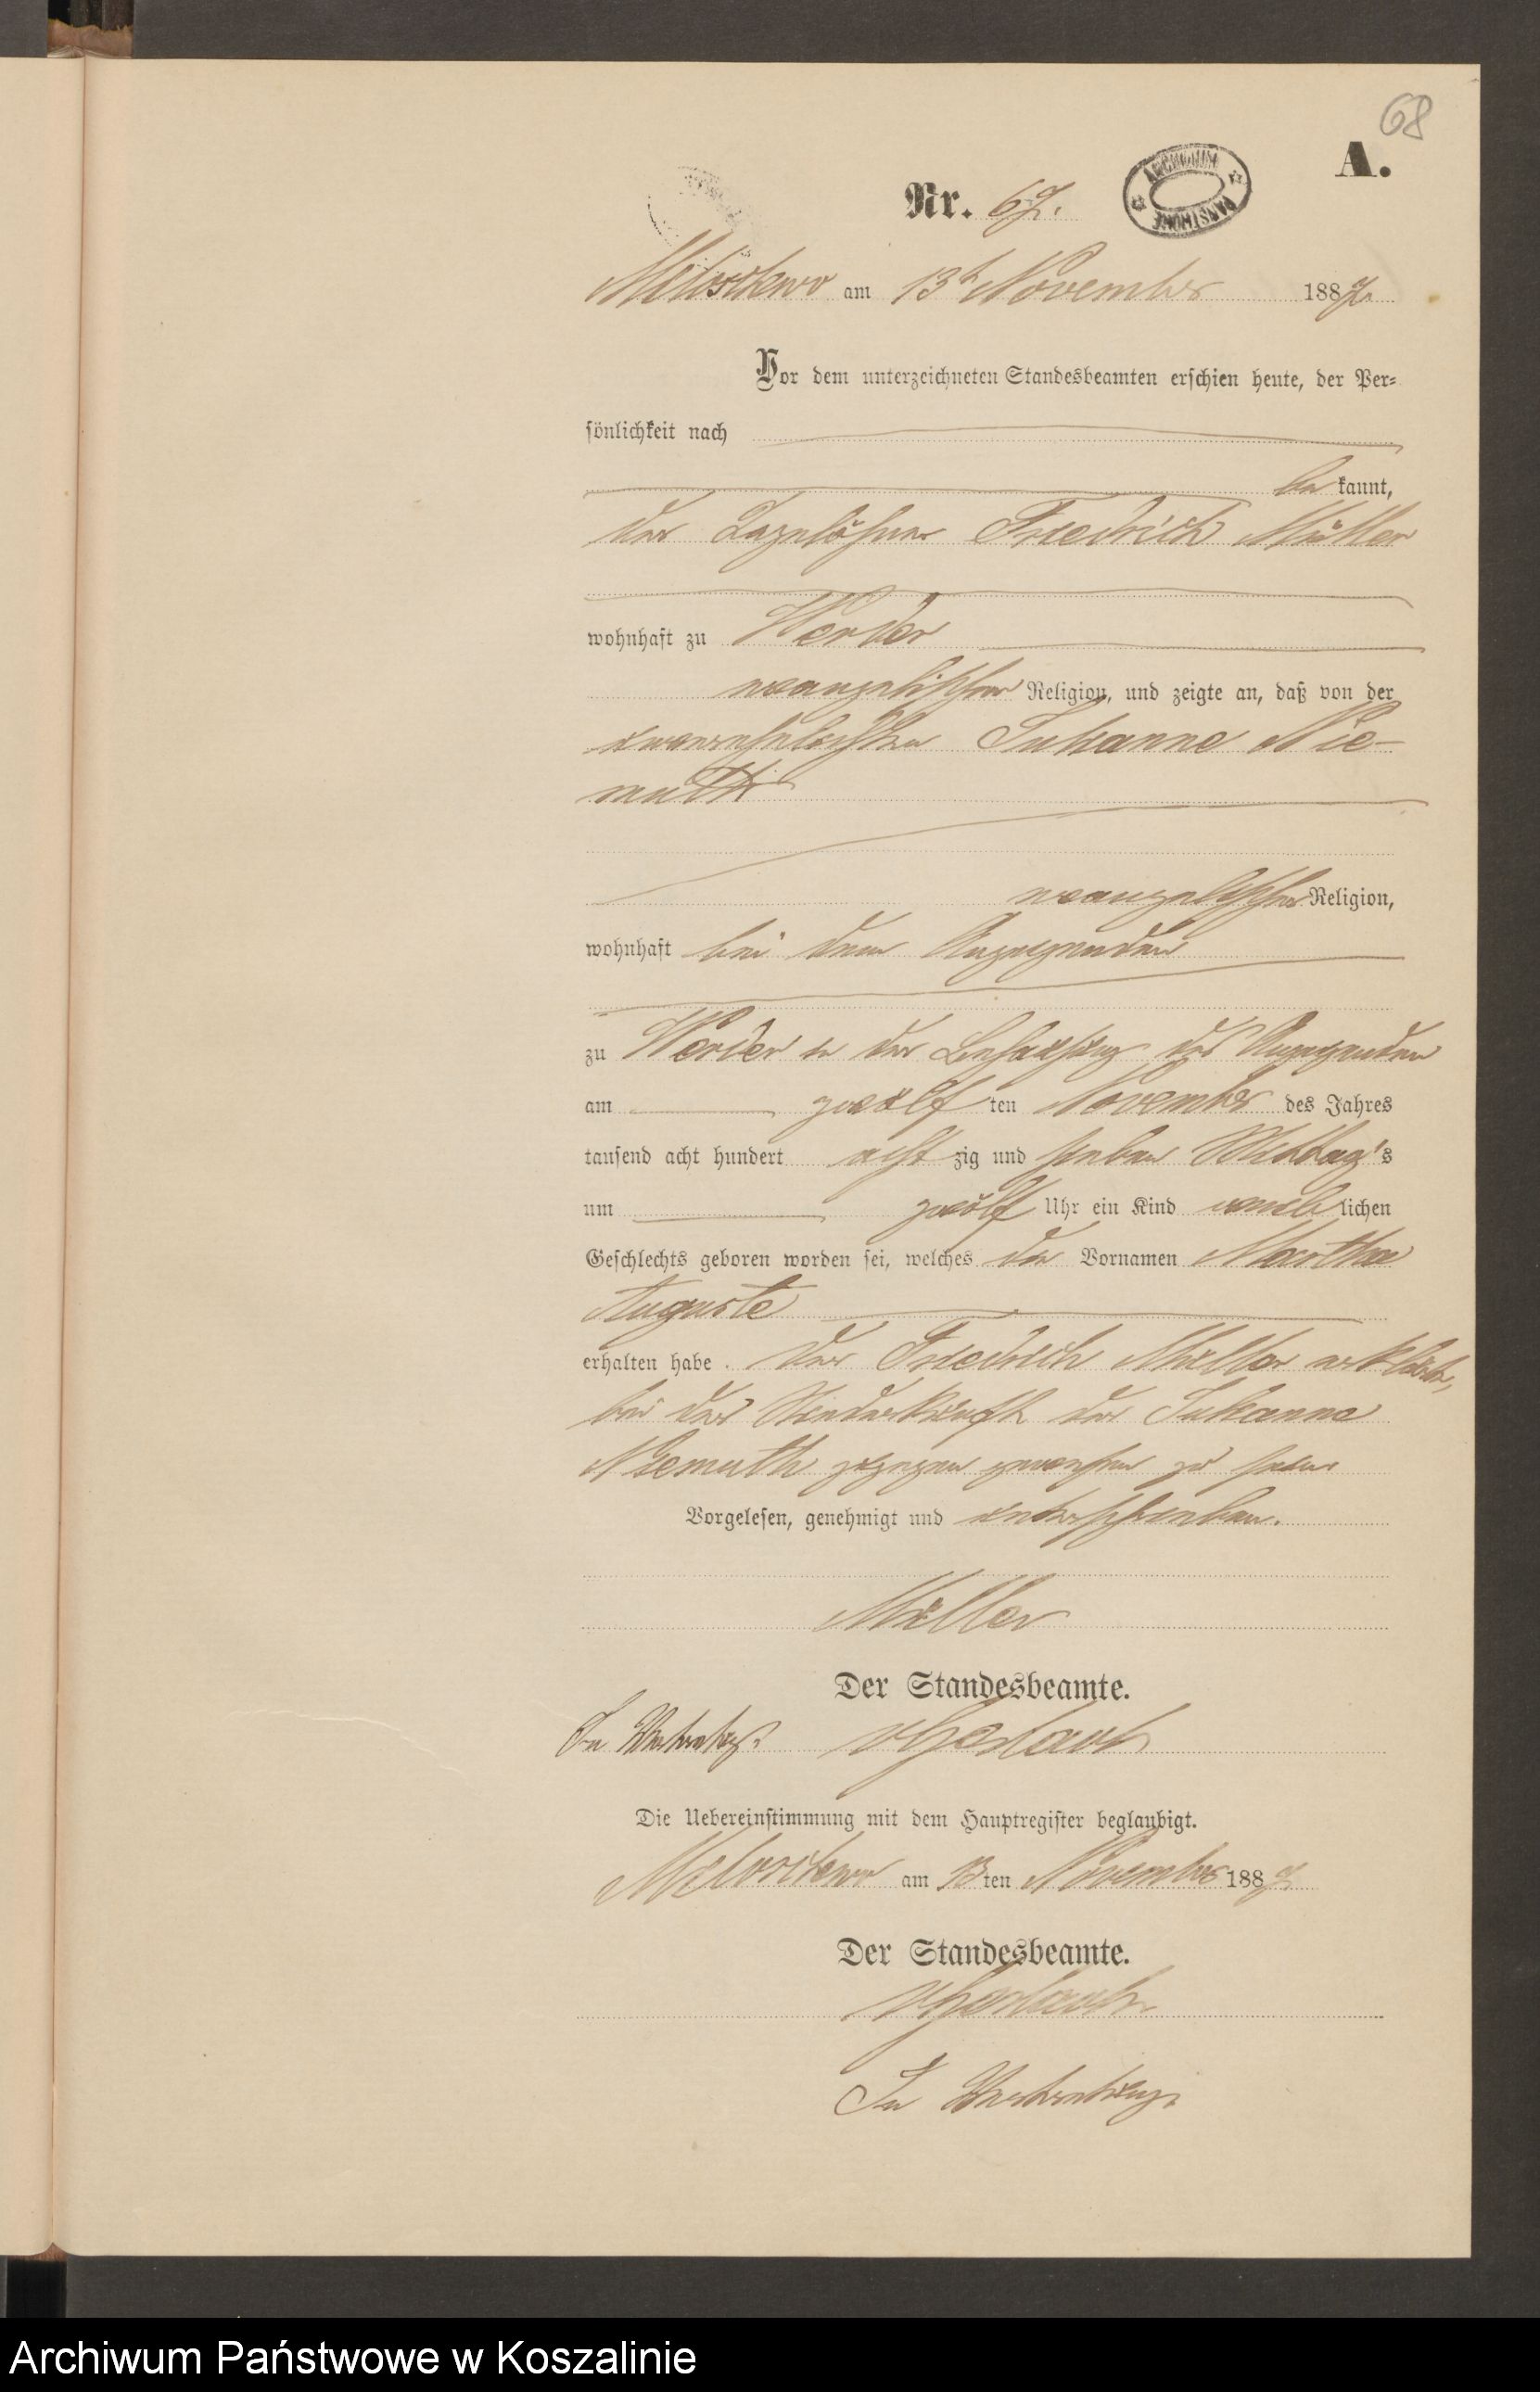 68
A.
Nr. 67.
ARCHIWUM PAŃSTWOWE
am 13t November 1887.
Vor dem unterzeichneten Standesbeamten erschien heute, der Per-
sönlichkeit nach
be kannt,
der Tagelöhner Friedrich Müller
wohnhaft zu Werder
evangelischer Religion, und zeigte an, daß von der
unverehelichten Juhanne Nie-
muth
evangelischer Religion,
wohnhaft bei dem Anzeigenden
zu Werder in der Behausung des Anzeigenden
am zwölf ten November des Jahres
tausend acht hundert acht zig und sieben Mittag's
um zwölf Uhr ein Kind weib lichen
Geschlechts geboren worden sei, welches die Vornamen Martha
Auguste
erhalten habe. Der Friedrich Müller erklärte,
bei der Niederkunft der Juhanna
Niemuth zugegen gewesen zu sein
Vorgelesen, genehmigt und unterschrieben.
Müller
Der Standesbeamte.
In Vertretung.
Die Uebereinstimmung mit dem Hauptregister beglaubigt.
am 13 ten November 1887
Der Standesbeamte.
In Vertretung.
Archiwum Państwowe w Koszalinie